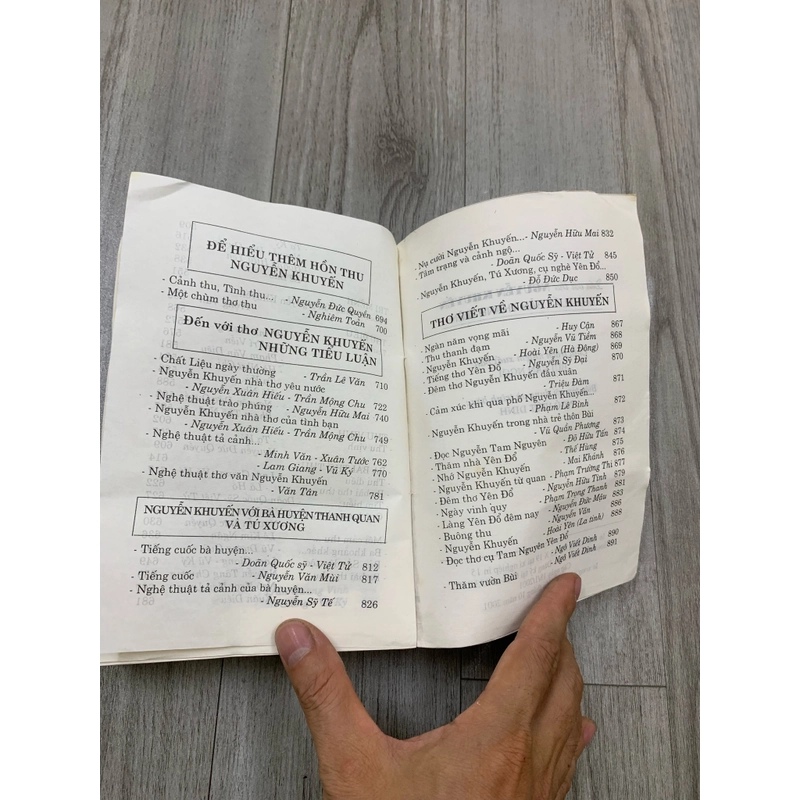 ĐỂ HIỂU THÊM HỒN THU
NGUYỄN KHUYẾN
- Cảnh thu, Tình thu
- Nguyễn Đức Quyền 694
- Một chùm thơ thu
- Nghiêm Toản 700
Đến với thơ NGUYỄN KHUYẾN
NHỮNG TIỂU LUẬN
- Chất Liệu ngày thường - Trần Lê Văn 710
- Nguyễn Khuyến nhà thơ yêu nước
- Nguyễn Xuân Hiếu - Trần Mộng Chu 722
- Nghệ thuật trào phúng - Nguyễn Hữu Mai 740
- Nguyễn Khuyến nhà thơ của tình bạn
- Nguyễn Xuân Hiếu - Trần Mộng Chu 749
- Nghệ thuật tả cảnh...
- Minh Văn - Xuân Tước 762
- Lam Giang - Vũ Ký 770
- Nghệ thuật thơ văn Nguyễn Khuyến
- Văn Tân 781
NGUYỄN KHUYẾN VỚI BÀ HUYỆN THANH QUAN
VÀ TÚ XƯƠNG
- Tiếng cuốc bà huyện...
- Doãn Quốc sỹ - Việt Tử 812
- Tiếng cuốc - Nguyễn Văn Mùi 817
- Nghệ thuật tả cảnh của bà huyện...
- Nguyễn Sỹ Tế 826
- Nụ cười Nguyễn Khuyến... - Nguyễn Hữu Mai 832
- Tâm trạng và cảnh ngộ...
- Doãn Quốc Sỹ - Việt Tử 845
- Nguyễn Khuyến, Tú Xương, cụ nghè Yên Đổ...
- Đỗ Đức Dục 850
THƠ VIẾT VỀ NGUYỄN KHUYẾN
- Ngàn năm vọng mãi - Huy Cận 867
- Thu thanh đạm - Nguyễn Vũ Tiềm 868
- Nguyễn Khuyến - Hoài Yên (Hà Đông) 869
- Tiếng thơ Yên Đổ - Nguyễn Sỹ Đại 870
- Đêm thơ Nguyễn Khuyến đầu xuân
- Triệu Đàm 871
- Cảm xúc khi qua phố Nguyễn Khuyến...
- Phạm Lê Bình 872
- Nguyễn Khuyến trong nhà trẻ thôn Bùi
- Vũ Quần Phương 873
- Đọc Nguyễn Tam Nguyên - Đỗ Hữu Tấn 874
- Thăm nhà Yên Đổ - Thế Hùng 875
- Nhớ Nguyễn Khuyến - Mai Khánh 876
- Nguyễn Khuyến từ quan - Phạm Trường Thi 877
- Đêm thơ Yên Đổ - Nguyễn Hữu Tình 879
- Ngày vinh quy - Phạm Trọng Thanh 881
- Làng Yên Đổ đêm nay - Nguyễn Đức Mậu 883
- Buông thu - Nguyễn Văn 886
- Nguyễn Khuyến - Hoài Yên (La tinh) 888
- Đọc thơ cụ Tam Nguyên Yên Đổ
- Ngô Viết Dinh 890
- Thăm vườn Bùi - Ngô Viết Dinh 891